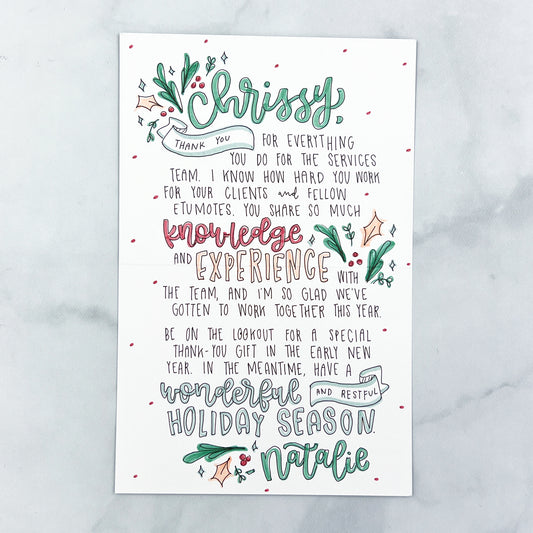 Chrissy,
THANK YOU FOR EVERYTHING
YOU DO FOR THE SERVICES
TEAM. I KNOW HOW HARD YOU WORK
FOR YOUR CLIENTS and FELLOW
ETUMOTES. YOU SHARE SO MUCH
knowledge
AND EXPERIENCE WITH
THE TEAM, AND I'M SO GLAD WE'VE
GOTTEN TO WORK TOGETHER THIS YEAR.
BE ON THE LOOKOUT FOR A SPECIAL
THANK-YOU GIFT IN THE EARLY NEW
YEAR. IN THE MEANTIME, HAVE A
wonderful AND RESTFUL
HOLIDAY SEASON.
Natalie